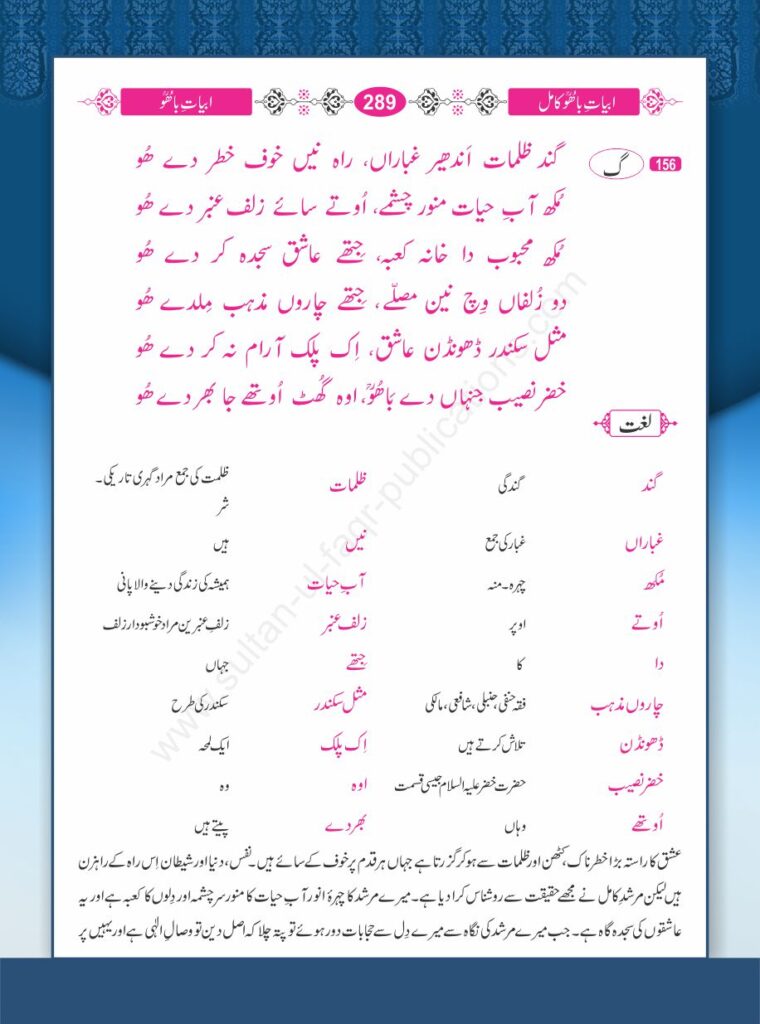 ابیاتِ باھُوؒ کامل 289 ابیاتِ باھُوؒ
156 گ
گند ظلمات اَندھیر غباراں، راہ نیں خوف خطر دے ھُو
مُکھ آبِ حیات منور چشمے، اُوتے سائے زلف عنبر دے ھُو
مُکھ محبوب دا خانہ کعبہ، جِتھے عاشق سجدہ کر دے ھُو
دو زُلفاں وِچ نین مصلّے، جِتھے چاروں مذہب مِلدے ھُو
مثل سکندر ڈھونڈن عاشق، اِک پلک آرام نہ کر دے ھُو
خضر نصیب جنہاں دے بَاھُوؒ، اوہ گُھٹ اُوتھے جا بھر دے ھُو
لغت
گند گندگی ظلمات ظلمت کی جمع مراد گہری تاریکی۔
شر
غباراں غبار کی جمع نیں ہیں
مُکھ چہرہ۔ منہ آبِ حیات ہمیشہ کی زندگی دینے والا پانی
اُوتے اوپر زلف عنبر زلفِ عنبرین مراد خوشبودار زلف
دا کا جِتھے جہاں
چاروں مذہب فقہ حنفی، حنبلی، شافعی، مالکی مثل سکندر سکندر کی طرح
ڈھونڈن تلاش کرتے ہیں اِک پلک ایک لمحہ
خضر نصیب حضرت خضر علیہ السلام جیسی قسمت اوہ وہ
اُوتھے وہاں بھردے پیتے ہیں
عشق کا راستہ بڑا خطرناک، کٹھن اور ظلمات سے ہو کر گزرتا ہے جہاں ہر قدم پر خوف کے سائے ہیں۔ نفس، دنیا اور شیطان اِس راہ کے راہزن
ہیں لیکن مرشدِ کامل نے مجھے حقیقت سے روشناس کرا دیا ہے۔ میرے مرشد کا چہرۂ انور آبِ حیات کا منور سرچشمہ اور دِلوں کا کعبہ ہے اور یہ
عاشقوں کی سجدہ گاہ ہے۔ جب میرے مرشد کی نگاہ سے میرے دِل سے حجابات دور ہوئے تو پتہ چلا کہ اصل دین تو وصالِ الٰہی ہے اور یہیں پر
www.sultan-ul-faqr-publications.com